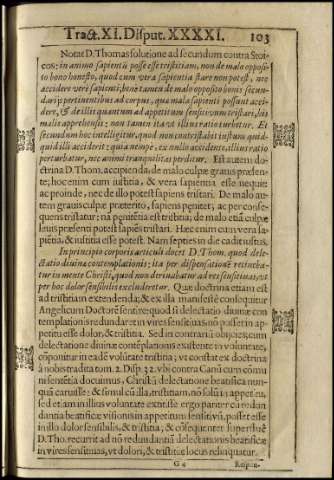 Tract. XI. Disput. XXXXI. 103
Notat D. Thomas solutione ad secundum contra Stoi-
cos: in animo sapientis posse esse tristitiam, non de malo opposi-
to bono honesto, quod cum vera sapientia stare non potest, nec
accidere vere sapienti; bene tamen de malo opposito bonis secun-
darijs pertinentibus ad corpus, qua mala sapienti possunt acci-
dere, & de illis quantum ad appetitum sensitivum tristari, his
malis apprehensis: non tamen ita vt illius ratio turbetur. Et
secundum hoc intelligitur, quod non contristabit iustum quid-
quid illi acciderit: quia nempè, ex nullo accidente, illius ratio
perturbatur, nec animi tranquilitas perditur. Est autem do-
ctrina D. Thom. accipienda, de malo culpæ grauis præsen-
te; hoc enim cum iustitia, & vera sapientia esse nequit:
ac proinde, nec de illo potest sapiens tristari. De malo au-
tem grauis culpæ præterito, sapiens pœnitet, ac per conse-
quens tristatur; nã pœnitẽtia est tristitia; de malo etiã culpæ
leuis præsenti potest sapiẽs tristari. Hæc enim cum vera sa-
piẽtia, & iustitia esse potest. Nam septies in die cadit iustus.
In principio corporis articuli docet D. Thom. quod dele-
ctatio diuinæ contemplationis; ita per dispensationẽ retineba-
tur in mente Christi, quod non deriuabatur ad vires sensitiuas, vt
per hoc dolor sensibilis excluderetur. Quæ doctrina etiam est
ad tristitiam extendenda; & ex illa manifestè consequitur
Angelicum Doctorẽ sentire: quod si delectatio diuinæ con
templationis redundaret in vires sensitiuas, nõ posset in ap-
petitu esse dolor, & tristitia. Sed in contrariũ obijces; cum
delectatione diuinæ contẽplationis existente in voluntate,
cõponitur in eadẽ volũtate tristitia; vt constat ex doctrina
à nobis tradita tom. 2. Disp. 32. vbi contra Canũ cum cõmu
ni sentẽtia docuimus, Christũ delectatione beatifica nun-
quã caruisse: & simul cũ illa, tristitiam, nõ solũ in appetitu,
sed etiam in illius voluntate extitisse: ergo pariter cũ redun
dantia beatificæ visionis in appetitum sensitivũ, posset esse
in illo dolor sensibilis, & tristitia; & cõsequenter superfluè
D. Tho. recurrit ad nõ redundantiã delectationis beatificæ
in vires sensitiuas, vt dolori, & tristitiæ locus relinquatur.
G 4 Respon-